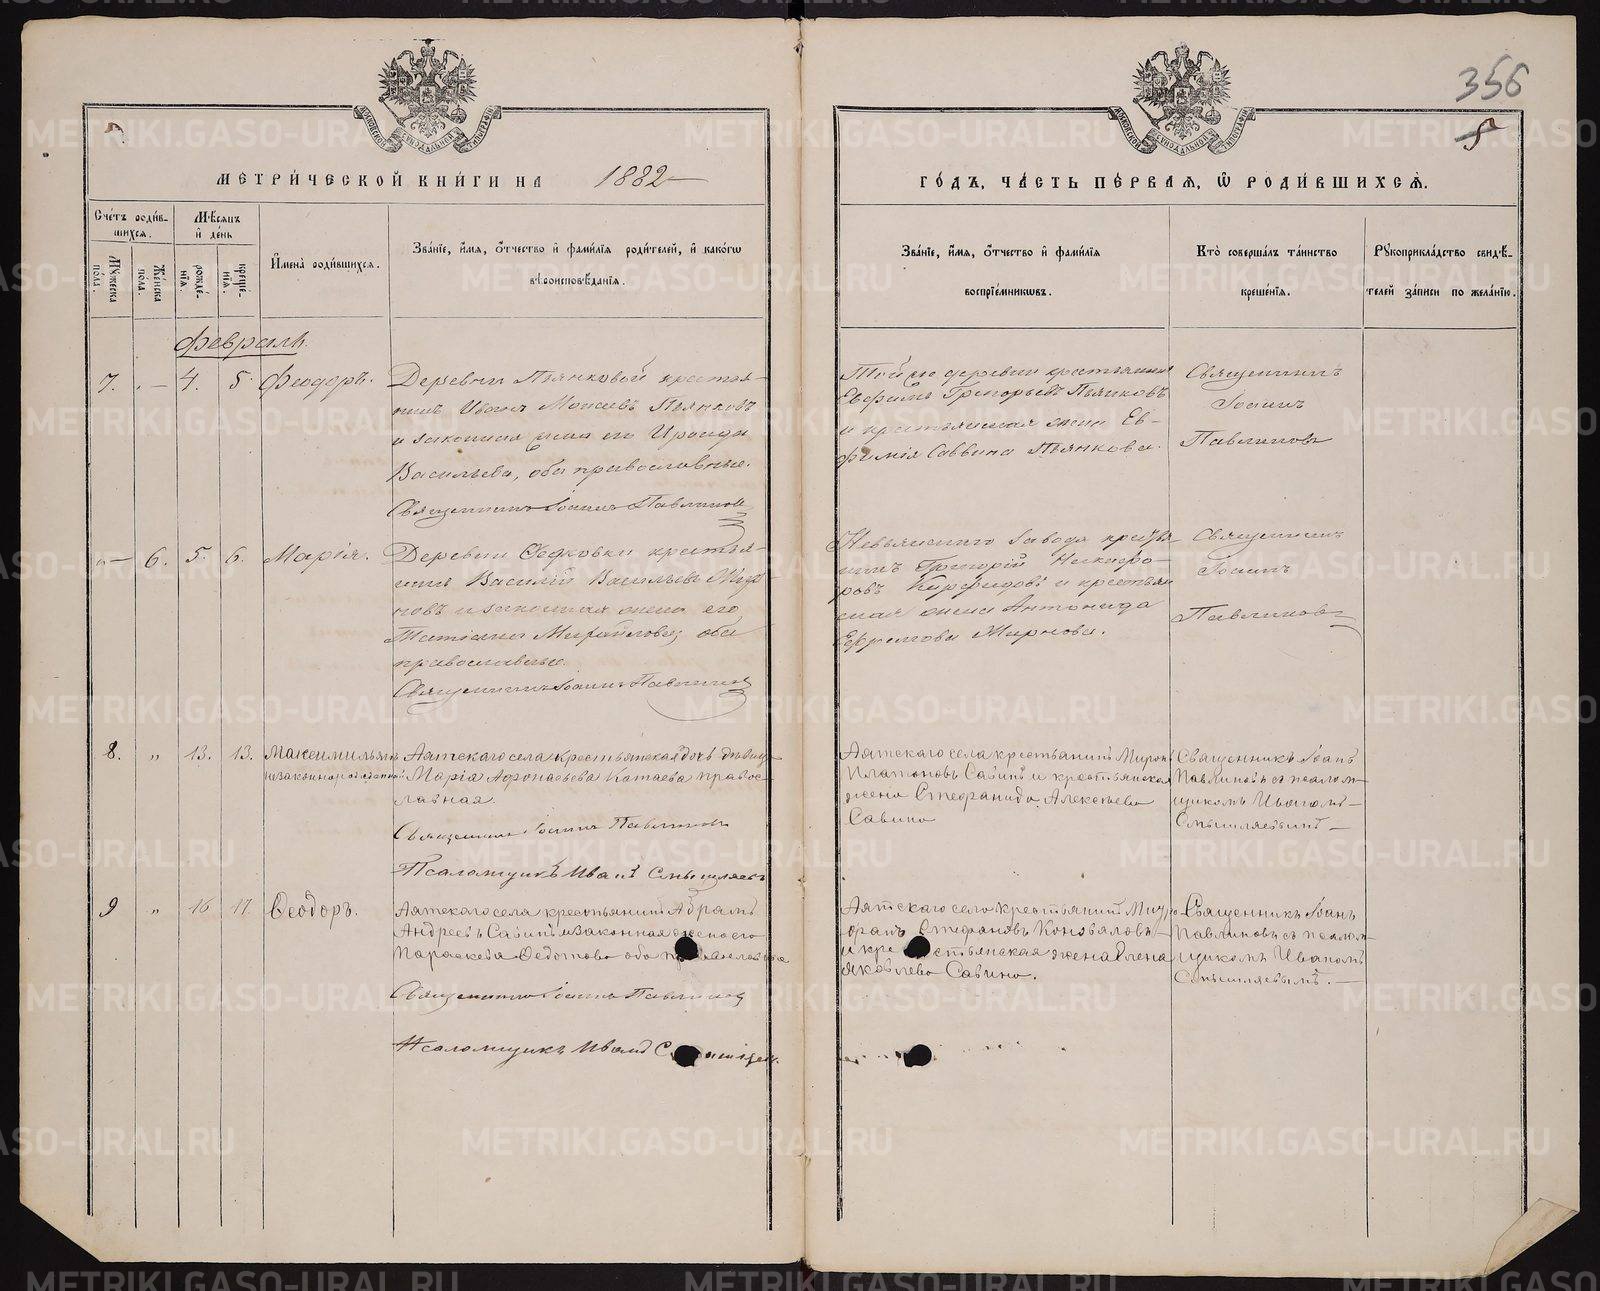 356
5
МЕТРИЧЕСКОЙ КНИГИ НА 1882
ГОДЪ, ЧАСТЬ ПЕРВАЯ, Ѿ РОДИВШИХСЯ.
Счетъ родившихся.
Мужеска пола.
Женска пола.
Мѣсяцъ и день
рожденїя.
крещенїя.
Имена родившихся.
Званїе, имя, отчество и фамилїя родителей, и какогω
вѣроисповѣданїя.
Званїе, имя, отчество и фамилїя
воспрїемникωвъ.
Кто совершалъ таинство
крещенїя.
Рукоприкладство свидѣтелей записи по желанїю.
Февраль.
7. – 4. 5. Феодоръ.
Деревни Пьянковой крестья-
нинъ Иванъ Моисеевъ Пьянковъ
и законная жена его Ироида
Васильева, оба православные.
Священникъ Іоаннъ Павлиновъ
Той же деревни крестьянинъ
Евфимъ Григорьевъ Пьянковъ
и крестьянская жена Ев-
фимія Саввина Пьянкова.
Священникъ
Іоаннъ
Павлиновъ
– 6. 5. 6. Марія.
Деревни Ѳедковки крестья-
нинъ Василій Васильевъ Жир-
новъ и законная жена его
Татіана Михайлова, оба
православные.
Священникъ Іоаннъ Павлиновъ
Невьянскаго завода крестья-
нинъ Григорій Никифо-
ровъ и крестьян
ская жена Антонида
Ефимова Жирнова.
Священникъ
Іоаннъ
Павлиновъ
8. " 13. 13. Максимильянъ
незаконнорожденный
Аятскаго села крестьянская дочь дѣвица
Марія Афонасьева Катаева правос-
лавная.
Священникъ Іоаннъ Павлиновъ
Псаломщикъ Иванъ Смышляевъ
Аятскаго села крестьянинъ Миронъ
Платоновъ Савинъ и крестьянская
жена Стефанида Алексѣева
Савина
Священникъ Іоанъ
Павлиновъ съ псалом-
щикомъ Иваномъ
Смышляевымъ
9 " 16 17 Ѳеодоръ.
Аятскаго села крестьянинъ Абрамъ
Андреевъ Савинъ и законная жена его
Параскева Ѳедотова оба православные
Священникъ Іоаннъ Павлиновъ
Псаломщикъ Иванъ
Аятскаго села крестьянинъ
Стефановъ Коновяловъ
и крестьянская жена Елена
Яковлева Савина.
Священникъ Іоанъ
Павлиновъ съ псалом-
щикомъ Иваномъ
Смышляевымъ.
METRIKI.GASO-URAL.RU